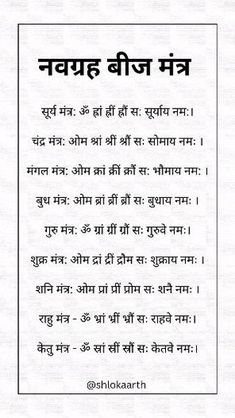 नवग्रह बीज मंत्र
सूर्य मंत्र: ॐ ह्रां ह्रीं ह्रौं सः सूर्याय नमः।
चंद्र मंत्र: ओम श्रां श्रीं श्रौं सः सोमाय नमः ।
मंगल मंत्र: ओम क्रां क्रीं क्रौं सः भौमाय नमः ।
बुध मंत्र: ओम ब्रां ब्रीं ब्रौं सः बुधाय नमः ।
गुरु मंत्र: ॐ ग्रां ग्रीं ग्रौं सः गुरुवे नमः।
शुक्र मंत्र: ओम द्रां द्रीं द्रौम सः शुक्राय नमः।
शनि मंत्र: ओम प्रां प्रीं प्रोम सः शनै नमः ।
राहु मंत्र - ॐ भ्रां भ्रीं भ्रौं सः राहवे नमः।
केतु मंत्र - ॐ स्रां स्रीं स्रौं सः केतवे नमः।
@shlokaarth